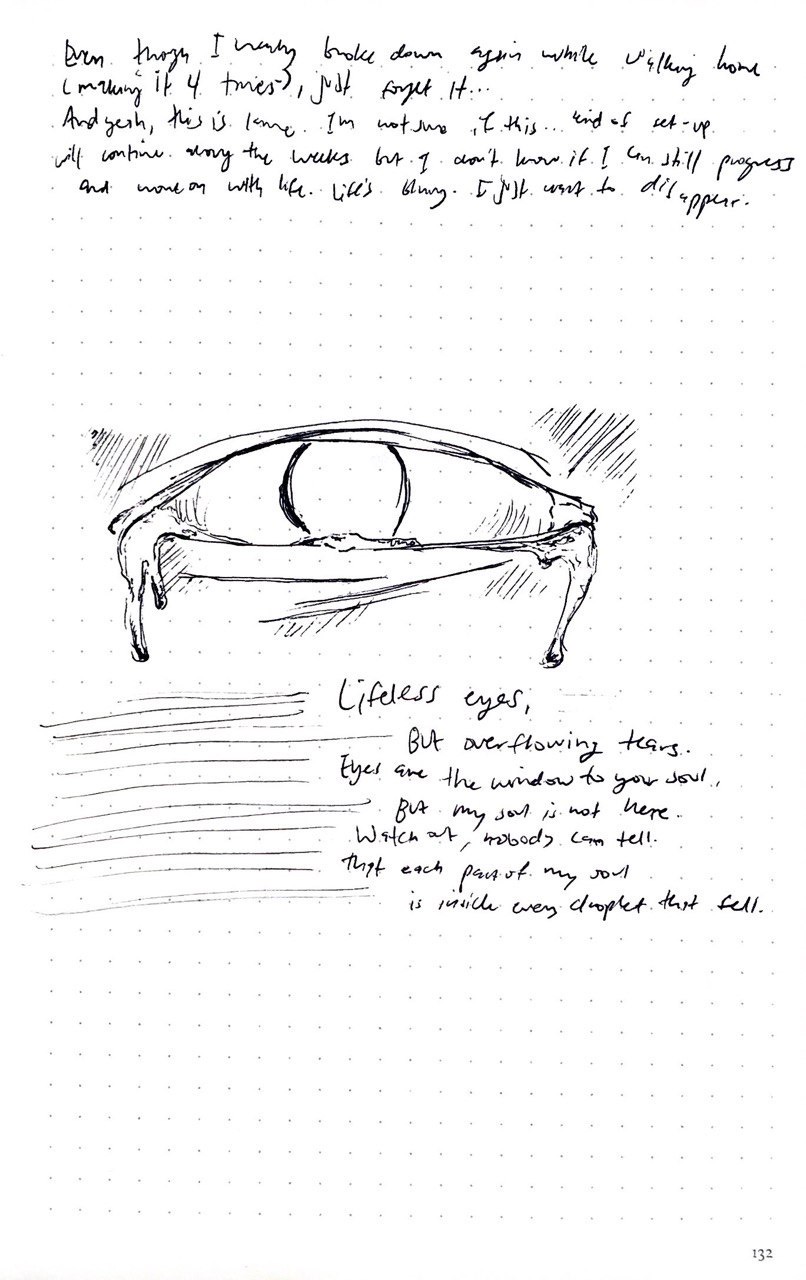 Even though I nearly broke down again while walking home
(making it 4 times), just forget it...
And yeah, this is lame. I'm not sure if this... kind of set-up
will continue along the weeks but I don't know if I can still progress
and move on with life. Life's blurry. I just want to disappear.
Lifeless eyes,
But overflowing tears.
Eyes are the window to your soul,
But my soul is not here.
Watch out, nobody can tell.
that each part of my soul
is inside every droplet that fell.
132